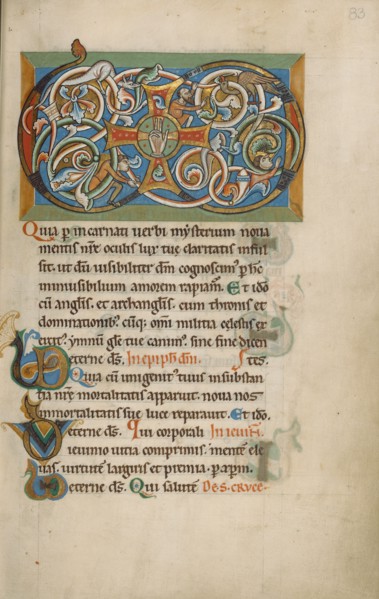 83
Quia p incarnati uerbi mysterium noua
mentis nrē oculis lux tue claritatis inful
sit. ut dū uisibiliter dm̄ cognoscim' p hc̄
inuisibilium amorem rapiam'. Et ido
cū anglis. et archanglis. cum thronis et
dominationib'. cūq; om̄i militia celestis ex
ercit'. ymnū gl̄e tue canim'. sine fine dicen
eterne ds̄. In epiph dni. tes.
Quia cū unigenit' tuus insubstan
tia nrē mortalitatis apparuit. noua nos
inmortalitatis sue luce reparauit. Et ido.
eterne ds̄. Qui corporali In ieiuni.
ieiunio uitia comprimis. mente ele
uas. uirtutē largiris et premia. p xpm.
eterne ds̄. Qui salutē De s. cruce